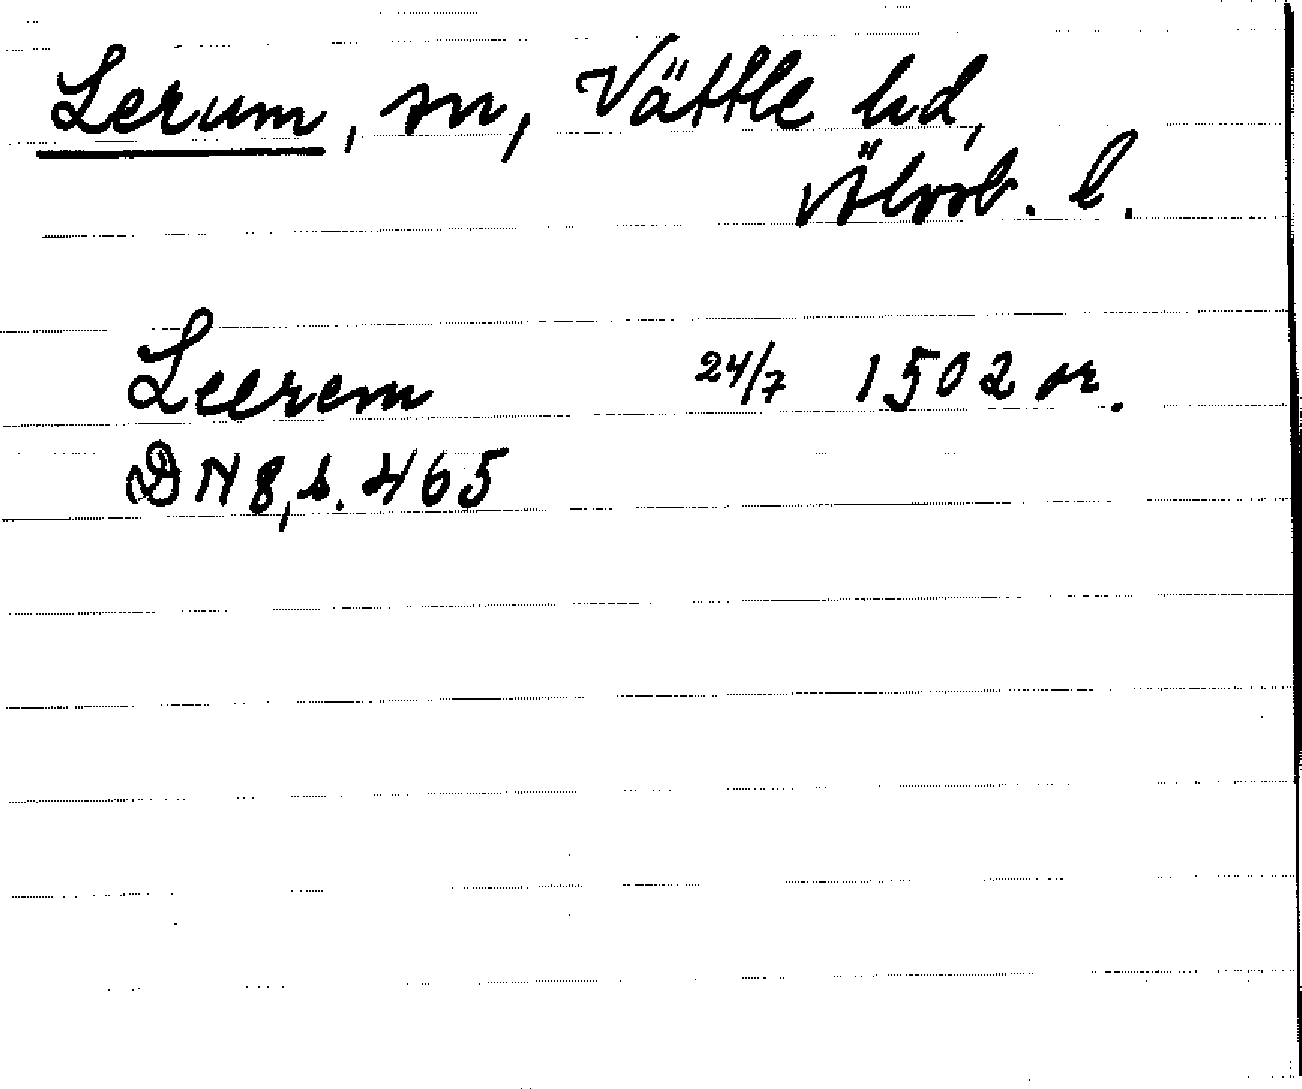 Lerum, sn, Vättle hd,
Älvsb. l.
Leerem 24/7 1502 or.
DN 8, s. 465